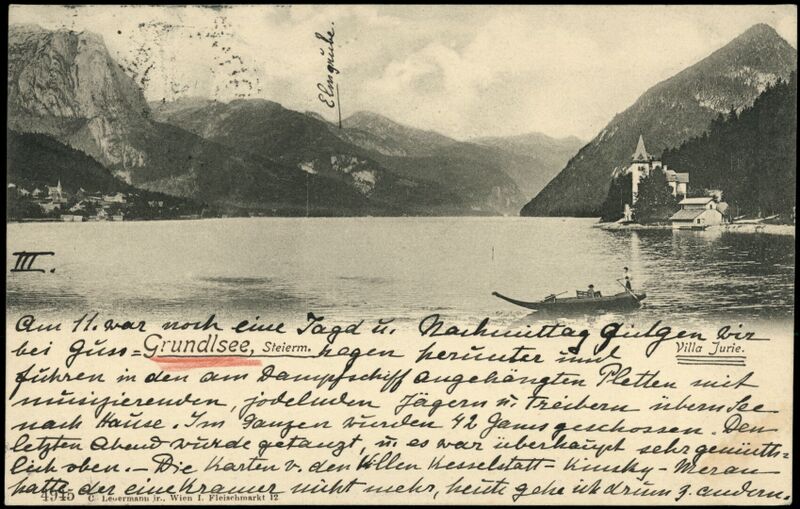 Elmgrube.
III.
Am 11. war noch eine Jagd u. Nachmittag gingen wir
bei Guss=
Grundlsee, Steierm.
regen herunter und
Villa Jurie.
fuhren in den am Dampfschiff angehängten Pletten mit
musizierenden, jodelnden Jägern u. Treibern übern See
nach Hause. Im ganzen wurden 42 Gams geschossen. Den
letzten Abend wurde getanzt, u. es war überhaupt sehr gemüth-
lich oben. – Die Karten v. den Villen Kesselstatt – Kinsky – Meran
hatte der eine Kramer nicht mehr, heute gehe ich drum z. andern.
4945 C. Ledermann jr., Wien I. Fleischmarkt 12